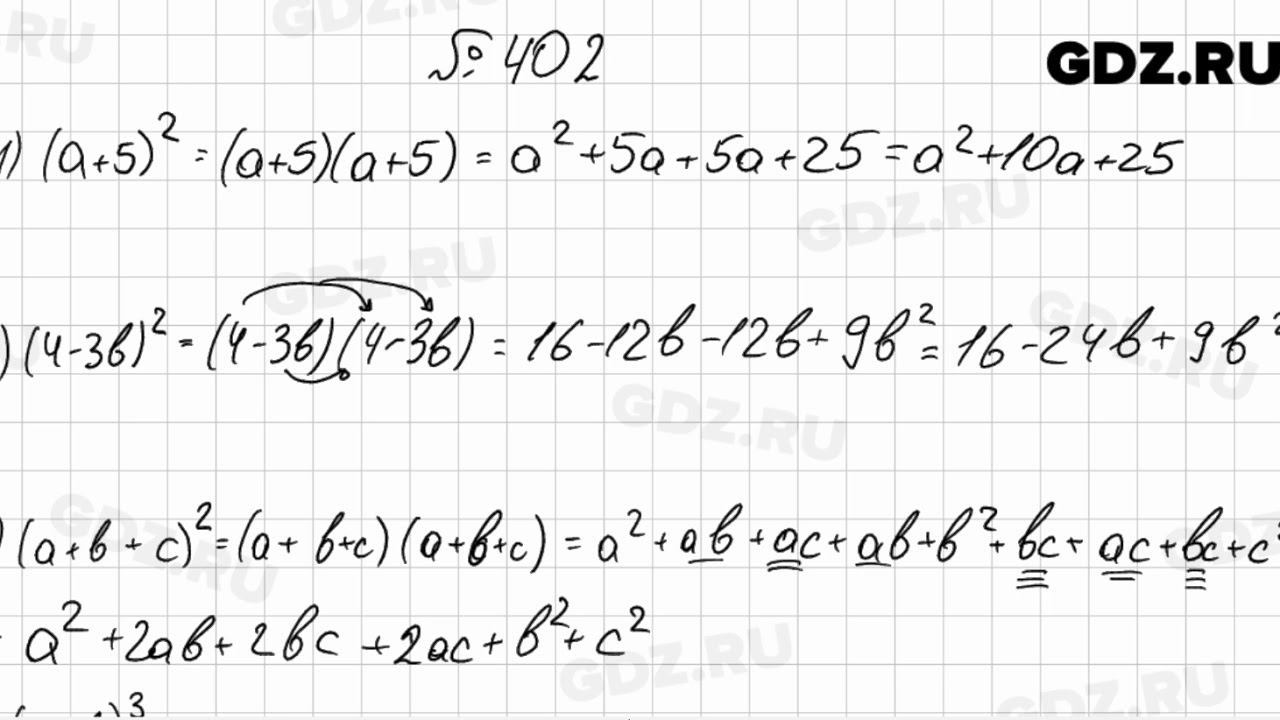 № 402
GDZ.RU
1) (a+5)² = (a+5)(a+5) = a²+5a+5a+25=a²+10a+25
) (4-3b)² = (4-3b)(4-3b) = 16-12b-12b+9b² = 16-24b+9b²
) (a+b+c)² = (a+b+c)(a+b+c) = a²+ab+ac+ab+b²+bc+ac+bc+c²
a²+2ab+2bc+2ac+b²+c²
)³